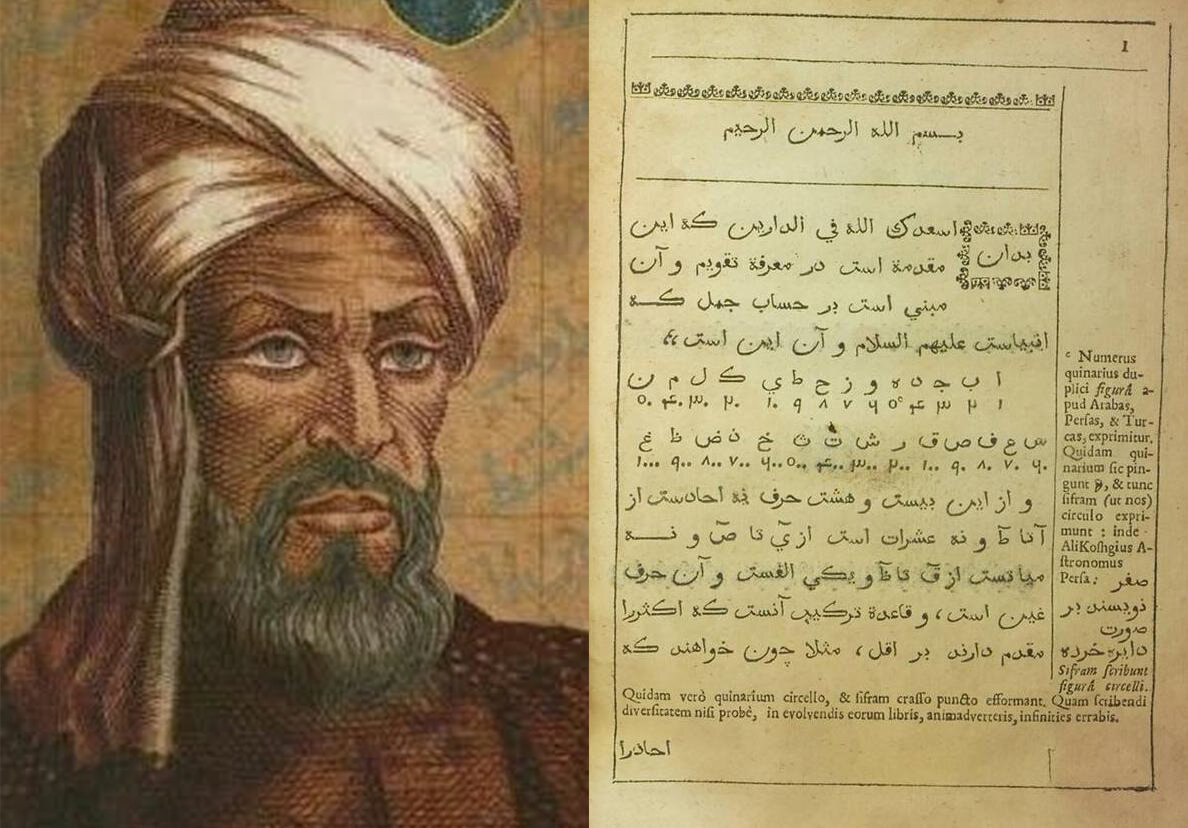 I
بسم الله الرحمن الرحيم
بدان اسعدك الله في الدارين كه اين
مقدمة است در معرفة تقويم و آن
مبني است بر حساب جمل كه
انبياست عليهم السلام و آن اين است
ا ب ج د ه و ز ح ط ي ك ل م ن
۱ ۲ ۳ ۴ ۵ ۶ ۷ ۸ ۹ ۱۰ ۲۰ ۳۰ ۴۰ ۵۰
س ع ف ص ق ر ش ت ث خ ذ ض ظ غ
۶۰ ۷۰ ۸۰ ۹۰ ۱۰۰ ۲۰۰ ۳۰۰ ۴۰۰ ۵۰۰ ۶۰۰ ۷۰۰ ۸۰۰ ۹۰۰ ۱۰۰۰
و از اين بيست و هشت حرف نه احادست از
آ تا ط و نه عشرات است از ي تا ص و نه
مياتست از ق تا ظ و يكي الفست و آن حرف
غين است، و قاعدة تركيب آنست كه اكثررا
مقدم دارند بر اقل، مثلا چون خواهند كه
c Numerus
quinarius du-
plici figurâ a-
pud Arabas,
Persas, & Tur-
cas, exprimitur.
Quidam qui-
narium sic pin-
gunt, & tunc
sifram (ut nos)
circulo expri-
munt : inde
AliKoshgius A-
stronomus
Persa: صفر
نويسند بر
صورت
دايره خرده
Sifram scribunt
figurâ circelli.
Quidam verò quinarium circello, & sifram crasso puncto efformant. Quam scribendi
diversitatem nisi probè, in evolvendis eorum libris, animadverteris, infinities errabis.
احادرا